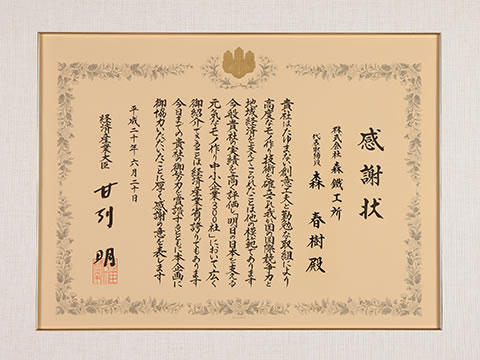 感謝状
株式会社 森鐵工所
代表取締役 森 春樹 殿
貴社はたゆまない創意工夫と勤勉な取組により
高度なモノ作り技術を確立され我が国の国際競争力と
地域経済を支えてこられたことは他の模範であります
今般貴社の実績を高く評価し「明日の日本を支える
元気なモノ作り中小企業300社」において広く
御紹介できることは経済産業省の誇りでもあります
今日までの貴社の御努力を賞讃するとともに本企画に
御協力いただいたことに厚く感謝の意を表します
平成二十年六月二十日
経済産業大臣 甘利 明